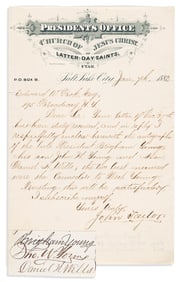 PRESIDENT'S OFFICE
OF THE
CHURCH OF JESUS CHRIST
OF
LATTER-DAY SAINTS.
P.O. BOX B.
Salt Lake City, Jany 7th, 1882
Edward W. Esq.
175 Broadway N.Y.
Dear Sir: Your letter of
has been duly received, and in reply I
respectfully enclose herewith the autographs
of the late President Brigham Young,
his son Jno. W. Young, and also
Daniel H. Wells, the two last named
were the Counselors to Prest. Young.
Trusting this will be satisfactory
I subscribe myself
Yours Truly
John Taylor
Brigham Young
Jno. W. Young
Daniel H. Wells